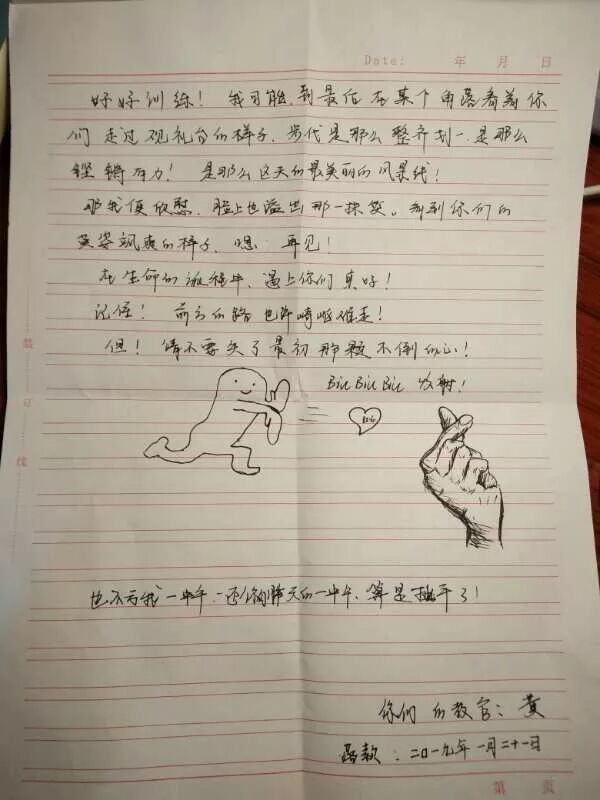 Date: 年 月 日
好好训练！我可能到最后在某个角落看着你
们走过观礼台的样子，步伐是那么整齐划一，是那么
铿锵有力！是那么这天的最美丽的风景线！
那我便欣慰，脸上也溢出那一抹笑。看到你们的
英姿飒爽的样子，嗯，再见！
在生命的旅程中，遇上你们真好！
记住！前方的路也许崎岖难走！
但！请不要失了最初那颗不倒的心！
Biu Biu Biu 发射！
也不亏我一中午，还你们昨天的一中午，算是扯平了！
你们的教官：黄
落款：二〇一九年一月二十一日
装
订
线
第 页